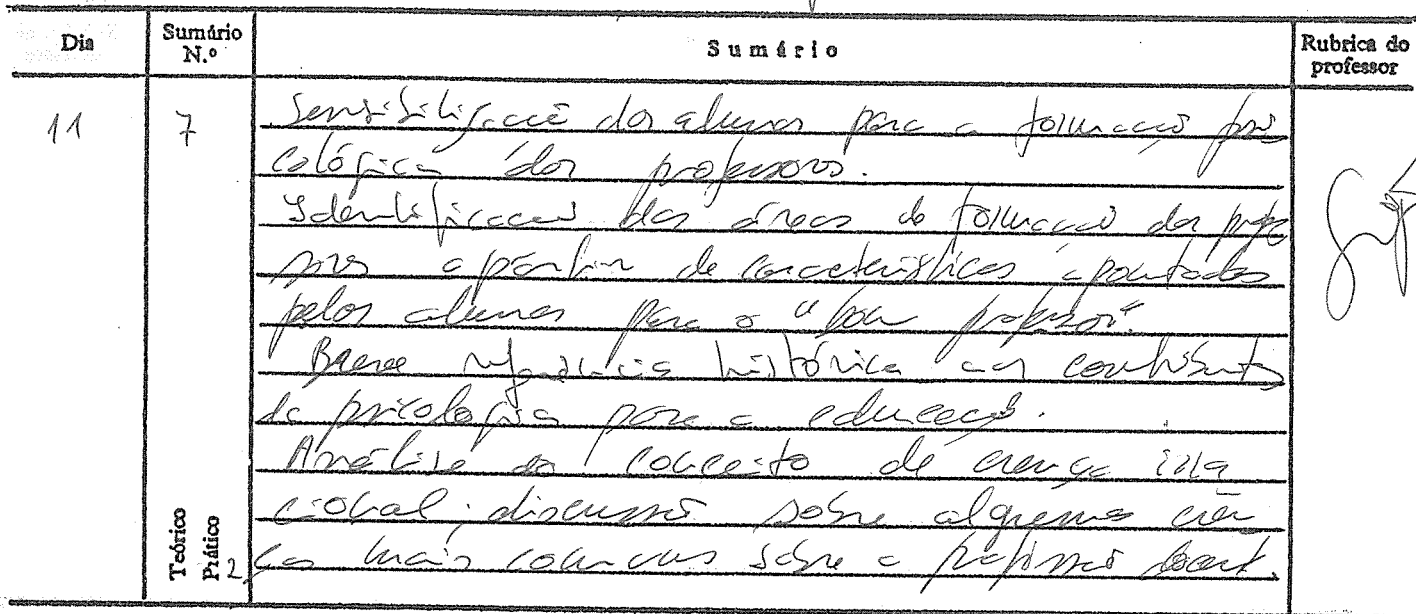 Dia Sumário N.º Sumário Rubrica do professor
11 7 Sensibilização dos alunos para a formação psi
cológica dos professores.
Identificação das áreas de formação dos profe
ssores a partir de características apontadas
pelos alunos para o "bom professor".
Breve referência histórica aos contributos
da psicologia para a educação.
Análise do conceito de crença irra
cional; discussão sobre algumas cren
ças mais comuns sobre a profissão docent.
Teórico
Prático 2